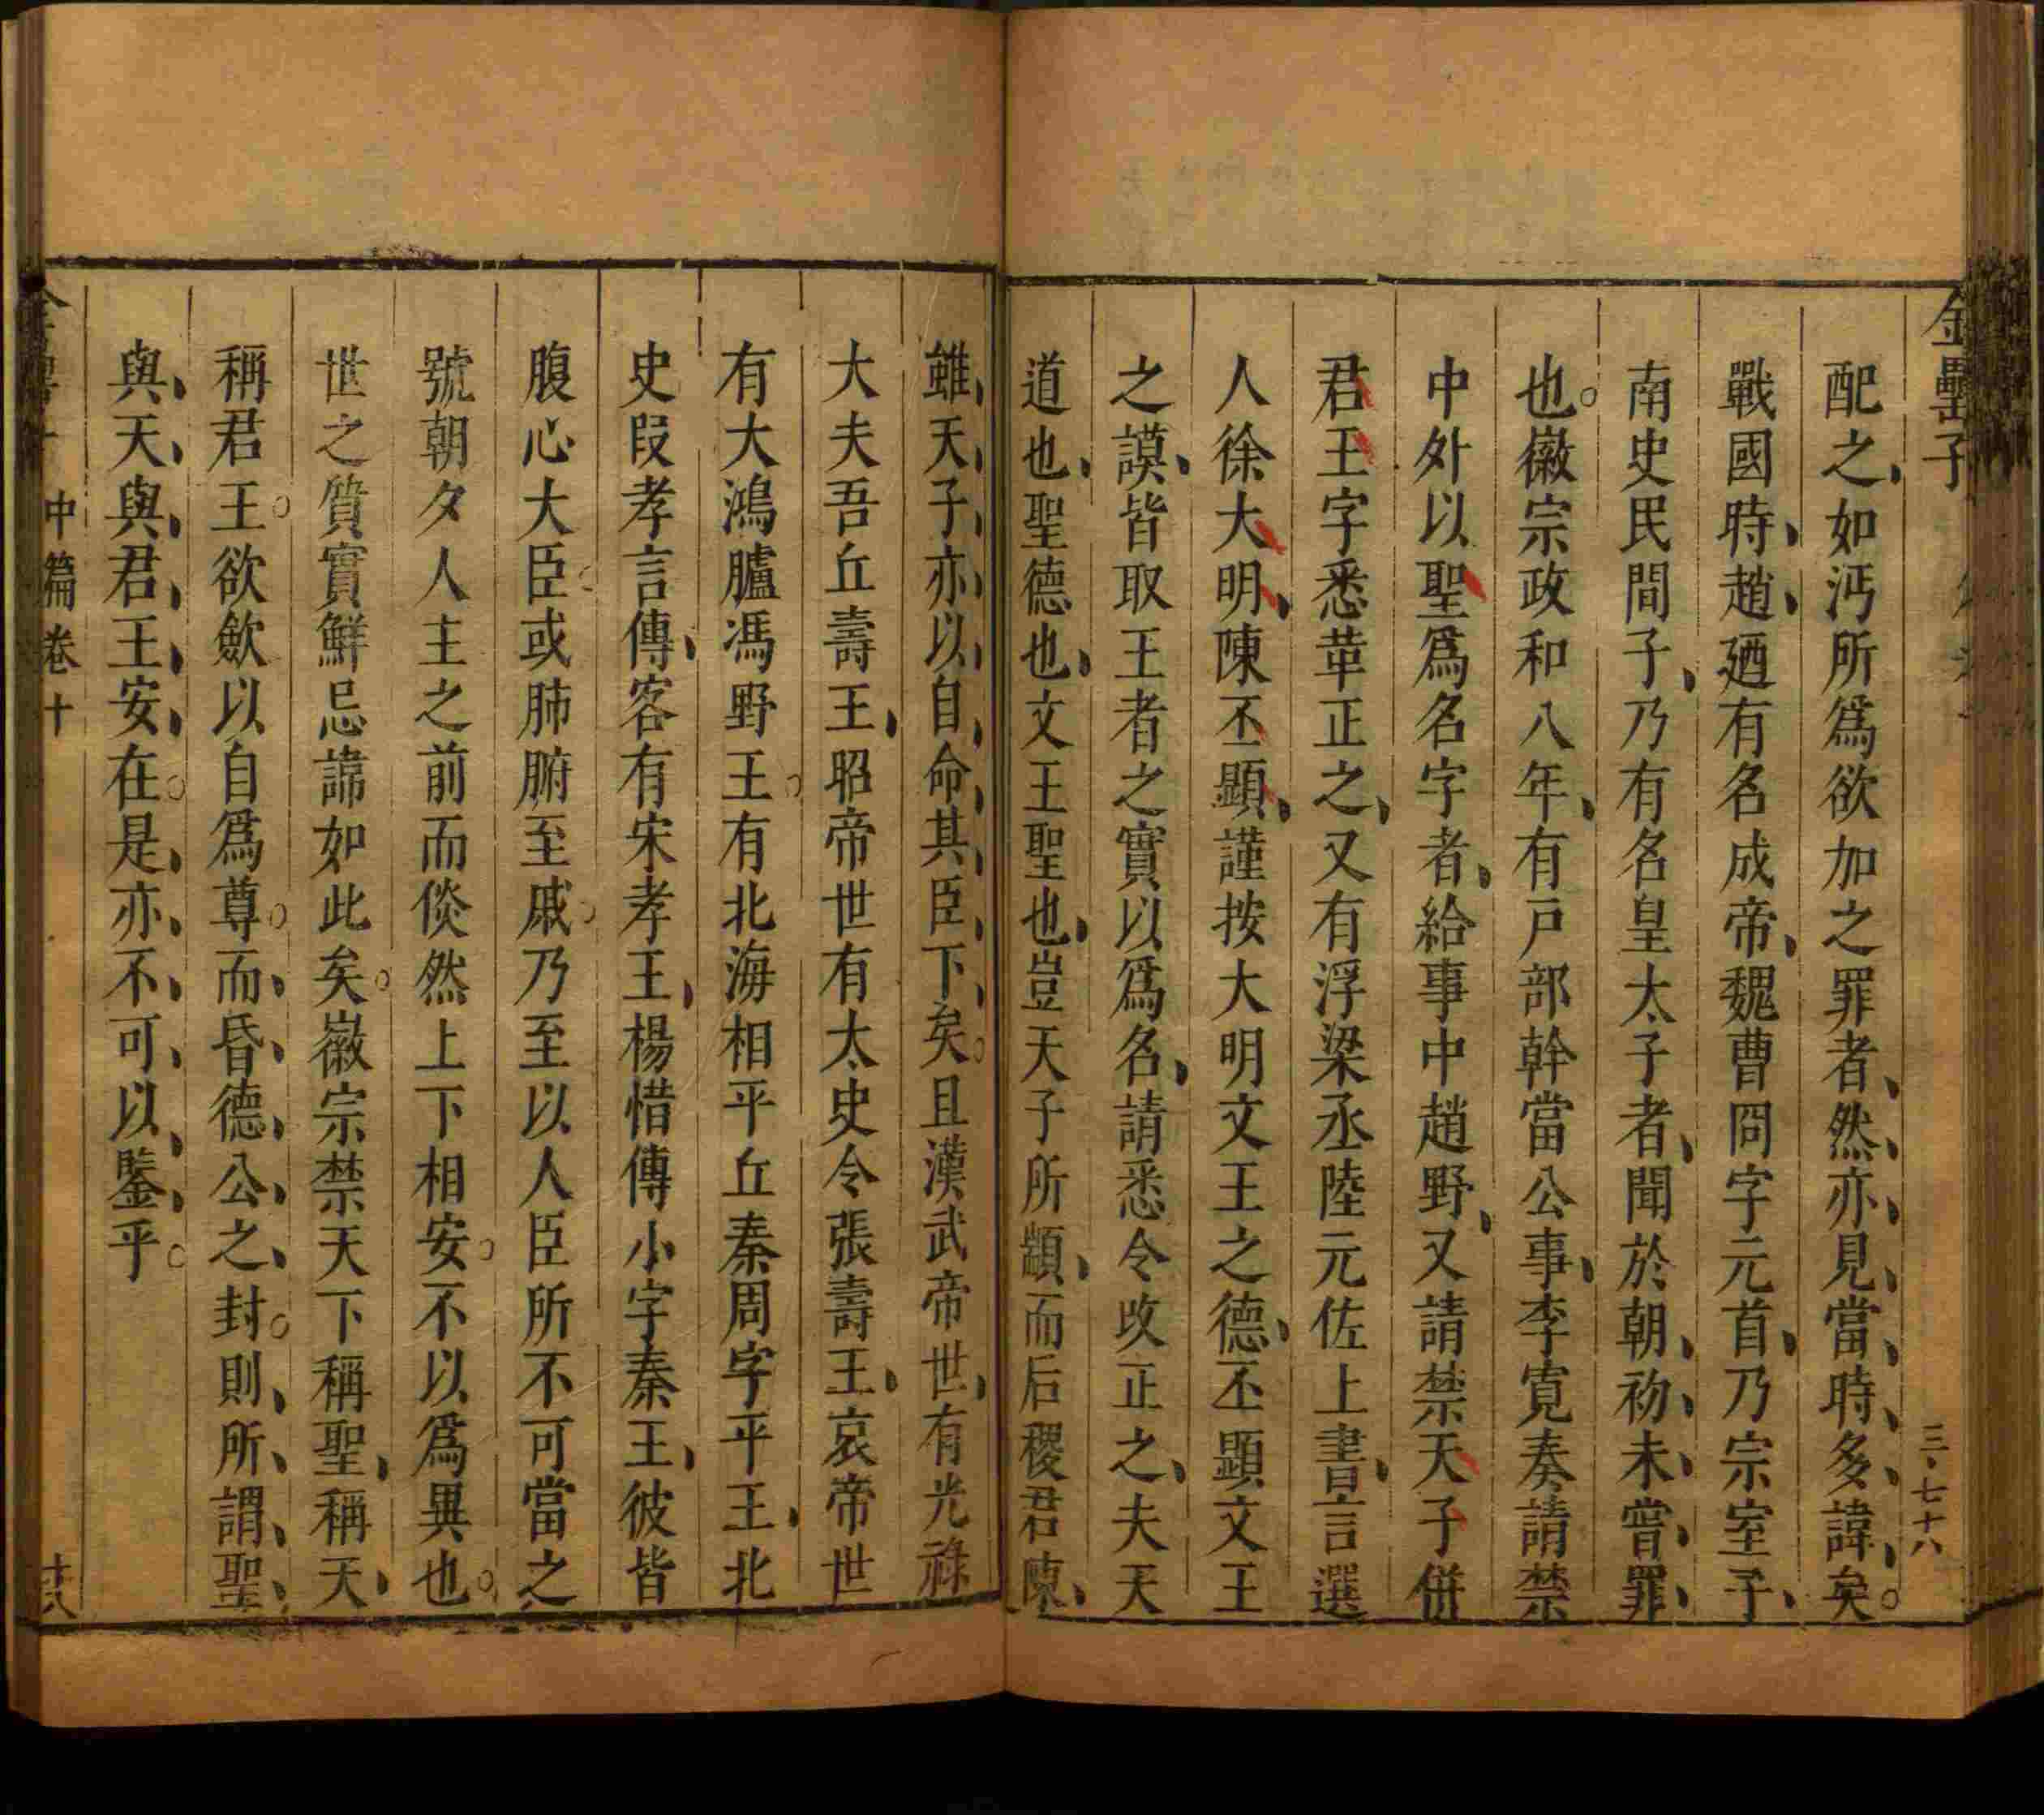 金罍子
三、七十八
配之、如沔所爲欲加之罪者、然、亦、見、當、時、多、諱、矣。
戰國時、趙、廼有名成帝、魏曹冏字元首、乃宗室子、
南史民間子、乃有名皇太子者、聞於朝、初、未、嘗、罪、
也。徽宗政和八年、有戸部幹當公事、李寛奏請禁
中外以聖爲名字者、給事中趙野、又請禁天子併
君王字悉革正之、又有浮梁丞陸元佐上書、言選
人徐大明、陳丕顯、謹按大明文王之德、丕顯文王
之謨、皆取王者之實以爲名、請悉令改正之、夫天
道也、聖德也、文王聖也、豈天子所顓、而后稷君陳、
雖、天、子、亦、以、自、命、其、臣、下、矣。且漢武帝世、有光祿
大夫吾丘壽王、昭帝世有太史令張壽王、哀帝世
有大鴻臚馮野王。有北海相平丘秦周字平王、北
史段孝言傳、客有宋孝王、楊惜傳小字秦王、彼皆
腹心大臣。或肺腑至戚。乃至以人臣所不可當之
號朝夕人主之前而倓然上下相安。不以爲異也。
世之質實鮮忌諱如此矣。徽宗禁天下稱聖、稱天、
稱君王。欲歛以自爲尊。而、昏、德、公、之、封。則、所、謂、聖、
與、天、與、君、王、安、在。是、亦、不、可、以、鑒、乎。
中篇卷十
十八